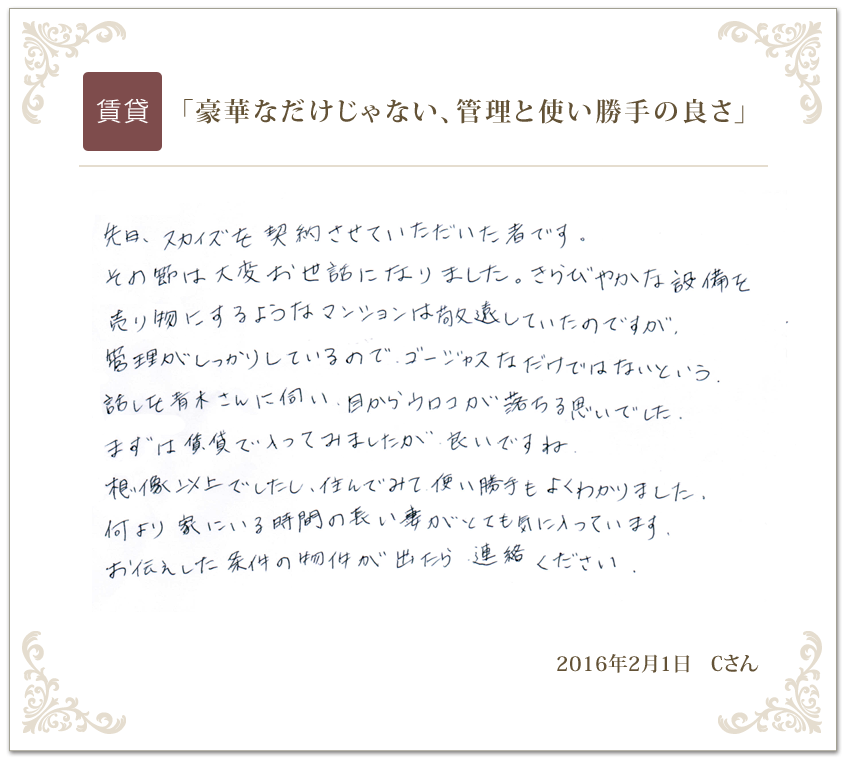 賃貸 「豪華なだけじゃない、管理と使い勝手の良さ」
先日、スカイズを契約させていただいた者です。
その節は大変お世話になりました。きらびやかな設備を
売り物にするようなマンションは敬遠していたのですが、
管理がしっかりしているので、ゴージャスなだけではないという、
話しを青木さんに伺い、目からウロコが落ちる思いでした。
まずは賃貸で入ってみましたが、良いですね。
想像以上でしたし、住んでみて、使い勝手もよくわかりました。
何より家にいる時間の長い妻がとても気に入っています。
お伝えした条件の物件が出たら、連絡ください。
2016年2月1日 Cさん